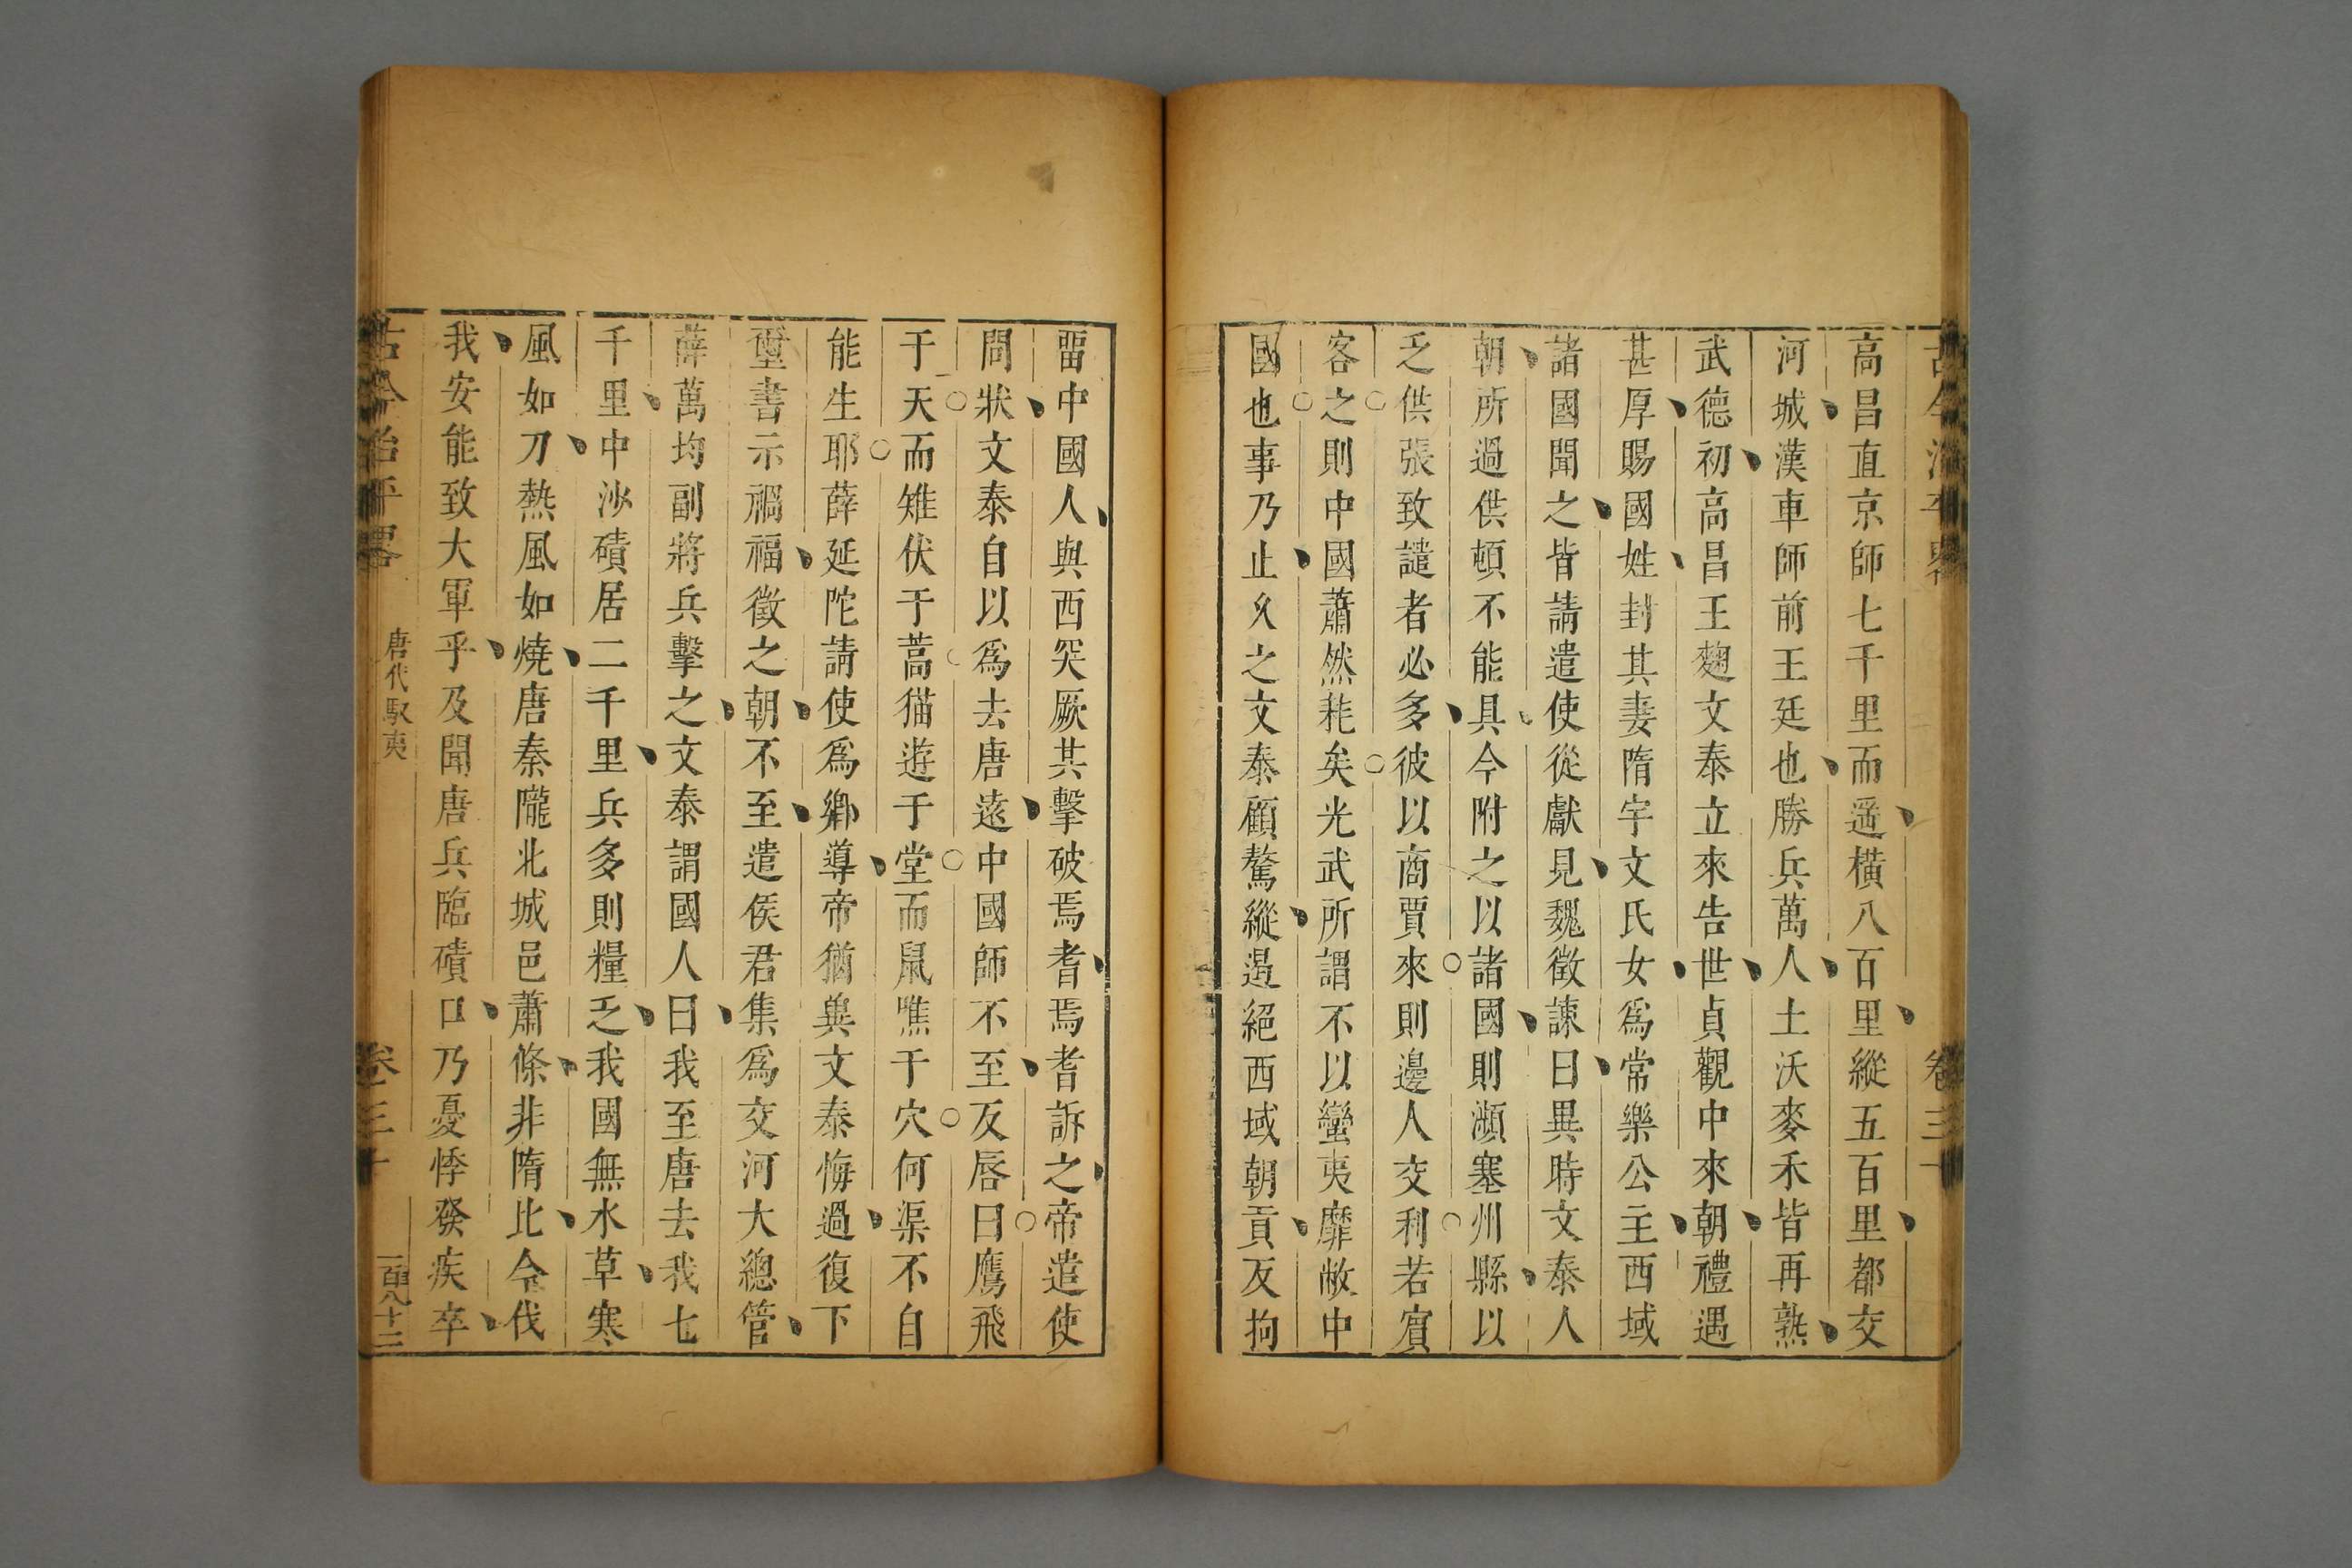 古今治平畧
卷三十
高昌直京師七千里而遥橫八百里縱五百里都交
河城漢車師前王廷也勝兵萬人土沃麥禾皆再熟
武德初高昌王麴文泰立來告世貞觀中來朝禮遇
甚厚賜國姓封其妻隋宇文氏女爲常樂公主西域
諸國聞之皆請遣使從獻見魏徵諫曰異時文泰人
朝所過供頓不能具今附之以諸國則瀕塞州縣以
乏供張致譴者必多彼以商賈來則邊人交利若賔
客之則中國蕭然耗矣光武所謂不以蠻夷靡敝中
國也事乃止久之文泰顧驁縱遏絕西域朝貢反拘
畱中國人與西突厥共擊破焉耆焉耆訴之帝遣使
問狀文泰自以爲去唐遠中國師不至反唇曰鷹飛
于天而雉伏于蒿猫遊于堂而鼠噍于穴何渠不自
能生耶薛延陀請使爲鄉導帝猶兾文泰悔過復下
璽書示禍福徵之朝不至遣侯君集爲交河大總管
薛萬均副將兵擊之文泰謂國人曰我至唐去我七
千里中沙磧居二千里兵多則糧乏我國無水草寒
風如刀熱風如燒唐秦隴北城邑蕭條非隋比今伐
我安能致大軍乎及聞唐兵臨磧口乃憂悸發疾卒
古今治平畧
唐代馭夷
卷三十
一百八十二